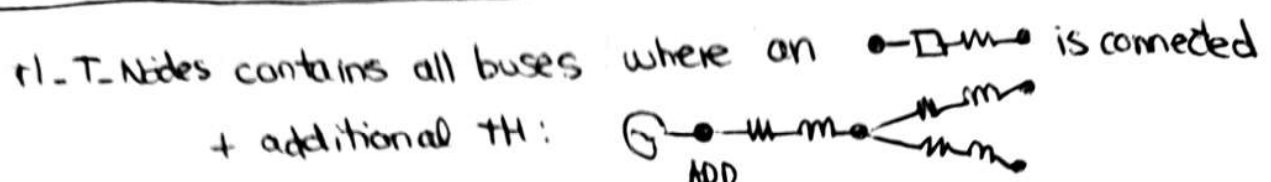 rl_T_Nodes contains all buses where an is connected
+ additional TH:
G
ADD